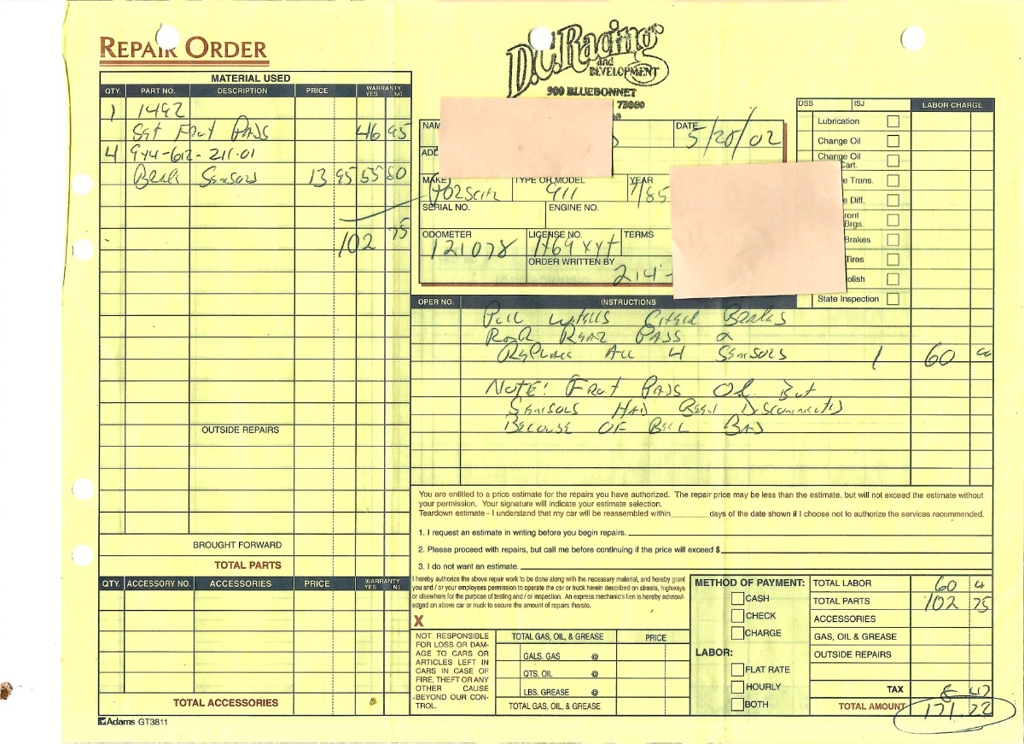 REPAIR ORDER
D.C. Racing
and
DEVELOPMENT
900 BLUEBONNET
MATERIAL USED
QTY. PART NO. DESCRIPTION PRICE WARRANTY
YES NO
1 1492
Set Frnt PADS 46 95
4 944-612-211-01
Brak Sensors 13 95 55 80
102 75
OUTSIDE REPAIRS
BROUGHT FORWARD
TOTAL PARTS
QTY. ACCESSORY NO. ACCESSORIES PRICE WARRANTY
YES NO
TOTAL ACCESSORIES
Adams GT3811
DATE 5/20/02
MAKE TYPE OR MODEL 911 YEAR
SERIAL NO. ENGINE NO.
ODOMETER 121078 LICENSE NO. TERMS
ORDER WRITTEN BY
214-
DSS ISJ LABOR CHARGE
Lubrication
Change Oil
Change Oil
Cart.
Trans.
Diff.
Brgs.
Brakes
Tires
State Inspection
OPER NO. INSTRUCTIONS
Pull wheels Check Brakes
Rear PADS
Replace All 4 Sensors 1 60
NOTE! Frnt PADS OK But
Sensors HAD Been Disconnected
Because OF BAD
You are entitled to a price estimate for the repairs you have authorized. The repair price may be less than the estimate, but will not exceed the estimate without
your permission. Your signature will indicate your estimate selection.
Teardown estimate - I understand that my car will be reassembled within days of the date shown if I choose not to authorize the services recommended.
1. I request an estimate in writing before you begin repairs.
2. Please proceed with repairs, but call me before continuing if the price will exceed $
3. I do not want an estimate.
I hereby authorize the above repair work to be done along with the necessary material, and hereby grant
you and / or your employees permission to operate the car or truck herein described on streets, highways
or elsewhere for the purpose of testing and / or inspection. An express mechanic's lien is hereby acknowl-
edged on above car or truck to secure the amount of repairs thereto.
X
NOT RESPONSIBLE
FOR LOSS OR DAM-
AGE TO CARS OR
ARTICLES LEFT IN
CARS IN CASE OF
FIRE, THEFT OR ANY
OTHER CAUSE
BEYOND OUR CON-
TROL.
TOTAL GAS, OIL, & GREASE PRICE
GALS. GAS @
QTS. OIL @
LBS. GREASE @
TOTAL GAS, OIL & GREASE
METHOD OF PAYMENT:
CASH
CHECK
CHARGE
LABOR:
FLAT RATE
HOURLY
BOTH
TOTAL LABOR 60
TOTAL PARTS 102 75
ACCESSORIES
GAS, OIL & GREASE
OUTSIDE REPAIRS
TAX 8 47
TOTAL AMOUNT 171.22